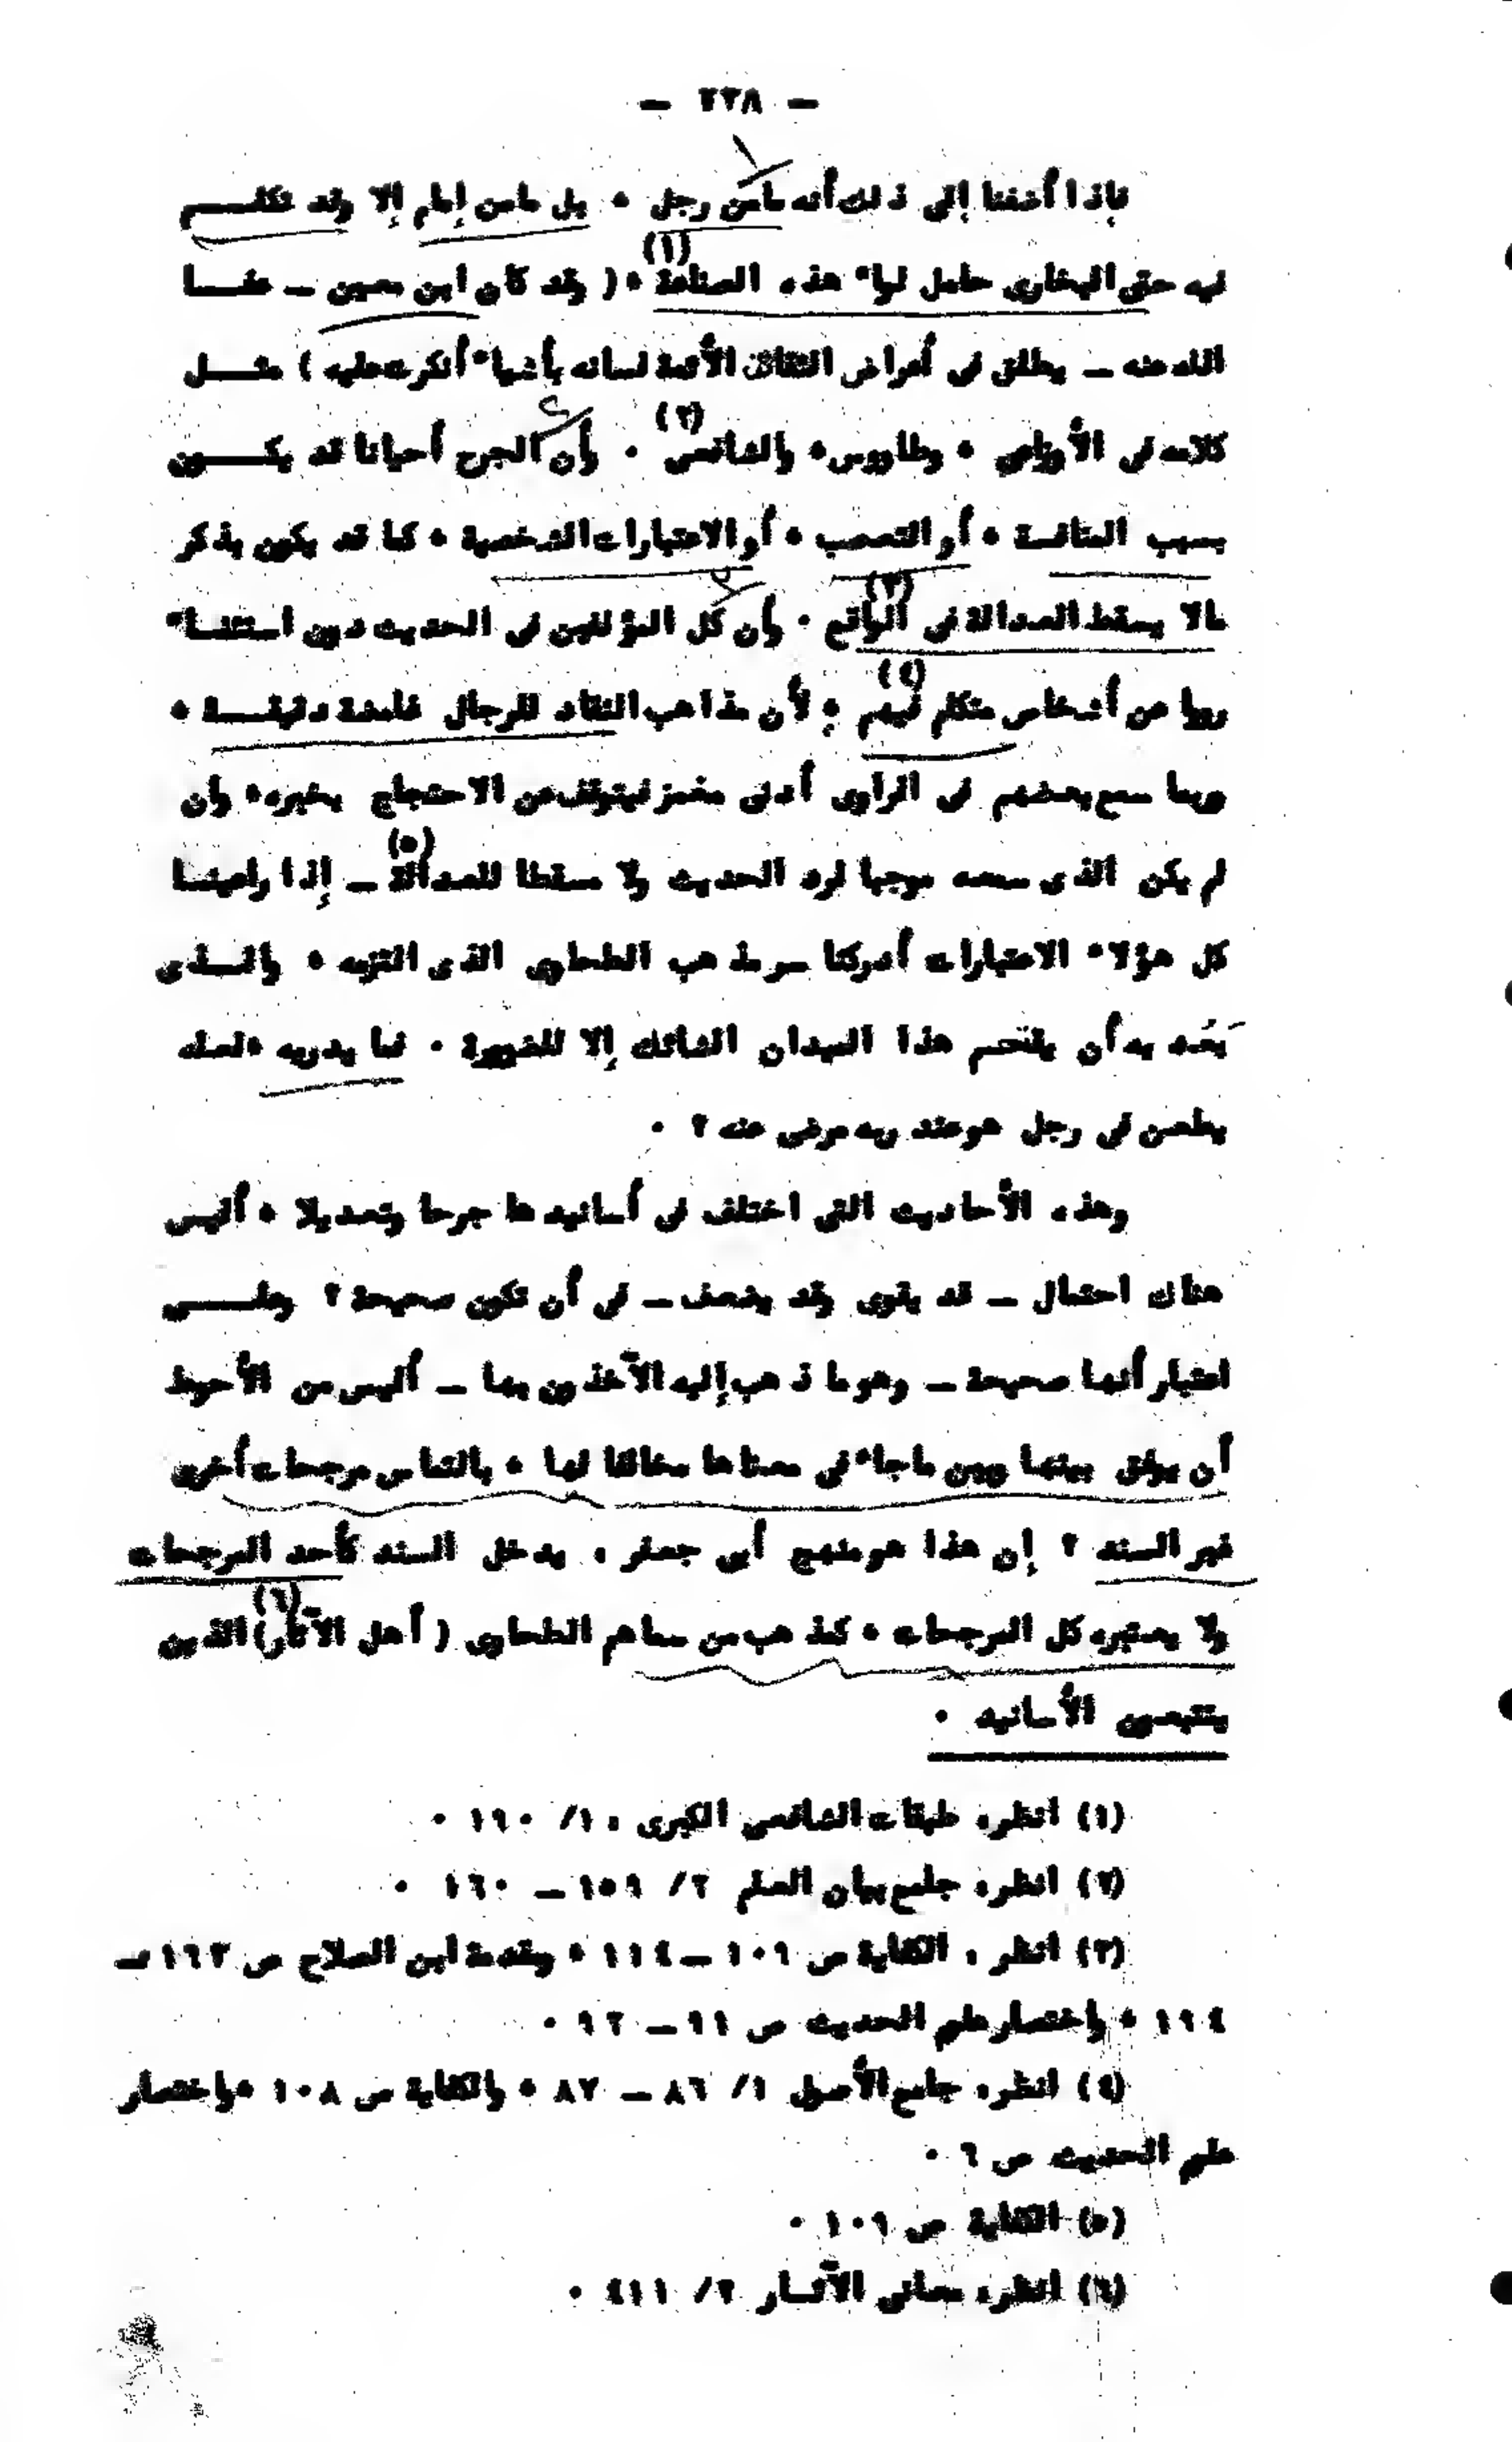 — ٢٢٨ —
فإذا أضفنا إلى ذلك أنه مامن رجل ، بل مامن إمام إلا وقد تكلم
فيه حتى البخارى حامل لواء هذه الصناعة (١) ، ( وقد كان ابن معين — عفا
الله عنه — يطلق فى أعراض الثقات الأئمة لسانه بأشياء أنكرت عليه ) مثل
كلامه فى الأوزاعى ، وطاووس ، والشافعى (٢) . وأن الجرح أحيانا قد يكون
بسبب المنافسة ، أو التعصب ، أو الاعتبارات الشخصية ، كما قد يكون بذكر
مالا يسقط العدالة فى الواقع (٣) . وأن كل المؤلفين فى الحديث دون استثناء
رووا عن أشخاص متكلم فيهم (٤) ، لأن مذاهب النقاد للرجال غامضة دقيقة ،
وربما سمع بعضهم فى الراوى أدنى مغمز فيتوقف عن الاحتجاج بخبره ، وان
لم يكن الذى سمعه موجبا لرد الحديث ولا مسقطا للعدالة (٥) — إذا راعينا
كل هؤلاء الاعتبارات أدركنا سر مذهب الطحاوى الذى التزمه ، والذى
يَعُد به أن يقتحم هذا الميدان الشائك إلا للضرورة . فما يدريه ، لعله
يطعن فى رجل هو عند ربه مرضى عنه ؟ .
وهذه الأحاديث التى اختلف فى أسانيدها جرحا وتعديلا ، أليس
هناك احتمال — قد يقوى وقد يضعف — فى أن تكون صحيحة ؟ وعلى
اعتبار أنها صحيحة — وهو ما ذهب إليه الآخذون بها — أليس من الأحوط
أن يوفق بينها وبين ماجاء فى معناها مخالفا لها ، بالتماس مرجحات أخرى
غير السند ؟ إن هذا هو منهج أبى جعفر ، يدخل السند كأحد المرجحات
ولا يعتبره كل المرجحات ، كمذهب من سماهم الطحاوى ( أهل الآثار ) (٦) الذين
يتتبعون الأسانيد .
(١) انظر، طبقات الشافعى الكبرى ، ١/ ١٩٠ .
(٢) انظر، جامع بيان العلم ٢/ ١٥٩ — ١٦٠ .
(٣) انظر ، الكفاية ص ١٠٩ — ١١٤ ، ومقدمة ابن الصلاح ص ١٦٣ —
١٩٤ ، واختصار علوم الحديث ص ٩١ — ٩٢ .
(٤) انظر، جامع الأصول ١/ ٨٦ — ٨٧ ، والكفاية ص ١٠٨ ، واختصار
علوم الحديث ص ٦ .
(٥) الكفاية ص ١٠٩ .
(٦) انظر، معانى الآثار ٢/ ٤١١ .